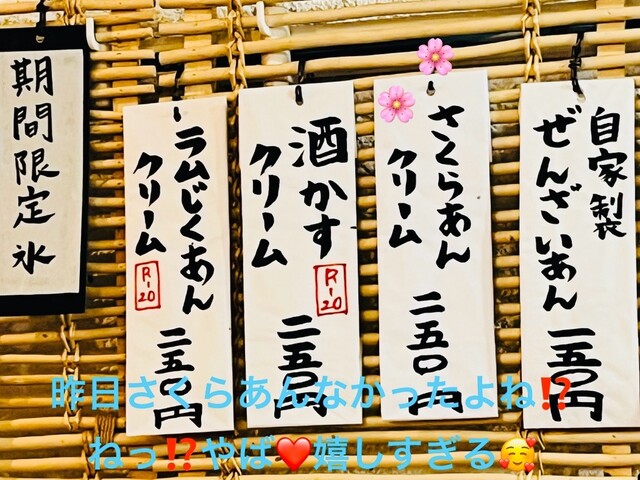 期間限定氷
ラムじくあん
クリーム
R-20
二五〇円
酒かす
クリーム
R-20
二五〇円
さくらあん
クリーム
二五〇円
自家製
ぜんざいあん
一五〇円
昨日さくらあんなかったよね⁉️
ねっ⁉️やば❤️嬉しすぎる🥰